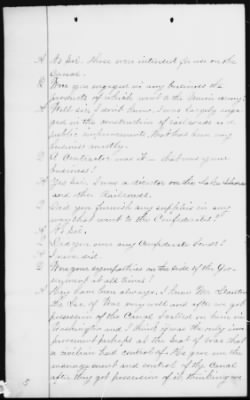 A No sir. These were intended for use on the
Canal.
Q Were you engaged in any business the
products of which went to the Union army?
A Well sir, I don't know, I was largely engag-
ed in the construction of rail roads and
public improvements. That has been my
business mostly.
Q A Contractor was it – that was your
business?
A Yes sir, I was a director on the Lake Shore
and other Railroads.
Q Did you furnish any supplies in any
way that went to the Confederates?
A No sir.
Q Did you own any Confederate bonds?
A I never did.
Q Were your sympathies on the side of the Gov-
ernment at all times?
A They have been always. I knew Mr Stanton
the Sec of War very well and after we got
possession of the Canal I called on him in
Washington and I think it was the only im-
provement perhaps at the seat of War that
a civilian had control of. He gave me the
management and control of the Canal
after they got possession of it, thinking we
5